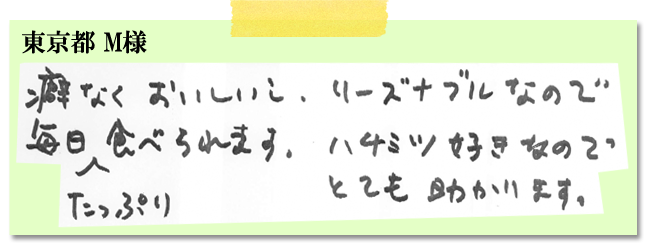 東京都 M様
癖なく おいしいし、リーズナブルなので
毎日食べられます。ハチミツ好きなので
たっぷり とても助かります。